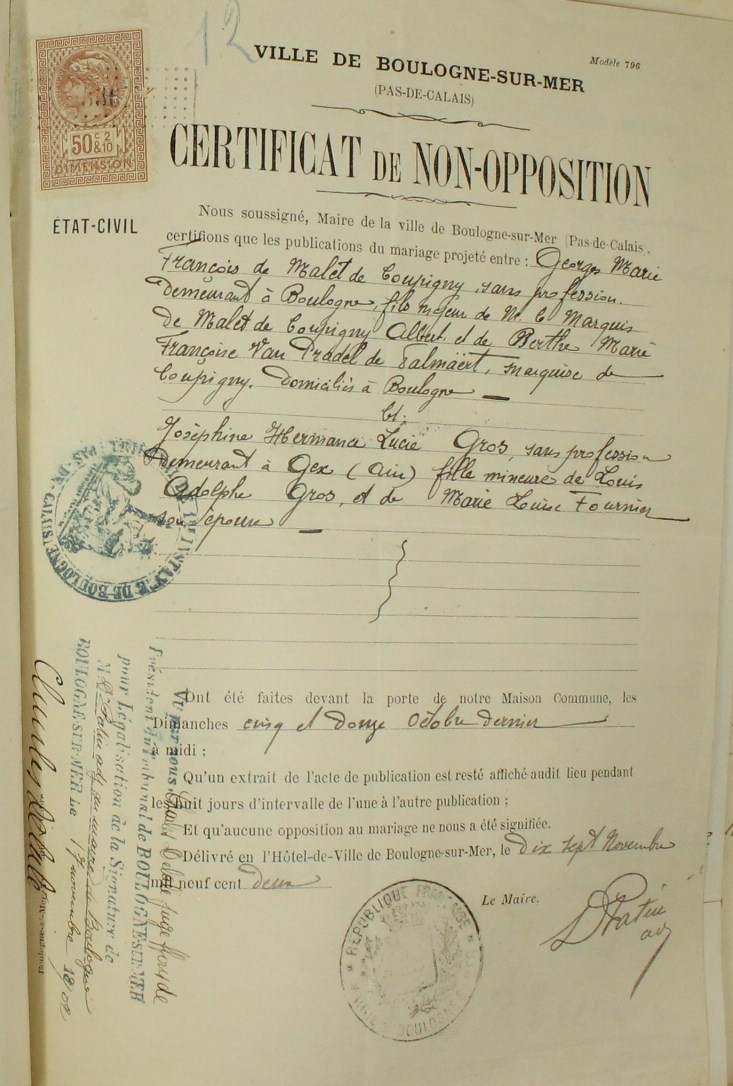 12
VILLE DE BOULOGNE-SUR-MER
Modèle 796
(PAS-DE-CALAIS)
CERTIFICAT DE NON-OPPOSITION
50 c 2 & 10
DIMENSION
ÉTAT-CIVIL
Nous soussigné, Maire de la ville de Boulogne-sur-Mer (Pas-de-Calais),
certifions que les publications du mariage projeté entre : Georges Marie
François de Malet de Coupigny, sans profession.
Demeurant à Boulogne, fils majeur de M. le Marquis
de Malet de Coupigny Albert, et de Berthe Marie
Françoise Van Pradel de Palmaërt, marquise de
Coupigny. Domiciliés à Boulogne —
Et,
Joséphine Hermance Lucie Gros, sans profession
Demeurant à Gex (Ain) fille mineure de Louis
Adolphe Gros, et de Marie Louise Fournier
son épouse —
Ont été faites devant la porte de notre Maison Commune, les
Dimanches cinq et douze Octobre dernier
à midi :
Qu'un extrait de l'acte de publication est resté affiché audit lieu pendant
les huit jours d'intervalle de l'une à l'autre publication ;
Et qu'aucune opposition au mariage ne nous a été signifiée.
Délivré en l'Hôtel-de-Ville de Boulogne-sur-Mer, le dix sept Novembre
mil neuf cent deux
Le Maire,
RÉPUBLIQUE FRANÇAISE
Vu par nous
Président du Tribunal de BOULOGNE-SUR-MER
pour Légalisation de la Signature de
BOULOGNE-SUR-MER Le 17 novembre 1902